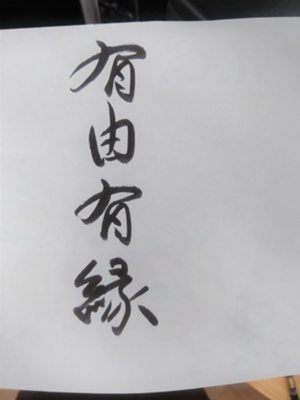 有由有縁